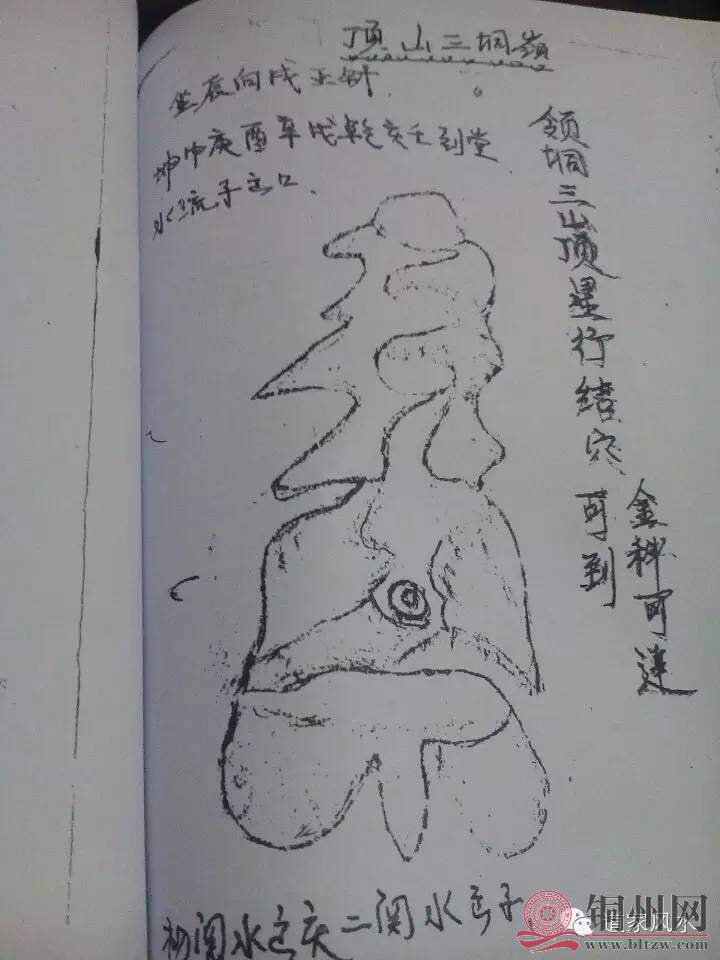 顶山三垌嶺
坐辰向戌正针
坤申庚酉辛戌乾亥壬到堂
水流子去口
领垌三山顶星行结穴可到
金科可连
初関水去庚二関水去子
铜州网
www.bltzw.com
道家风水